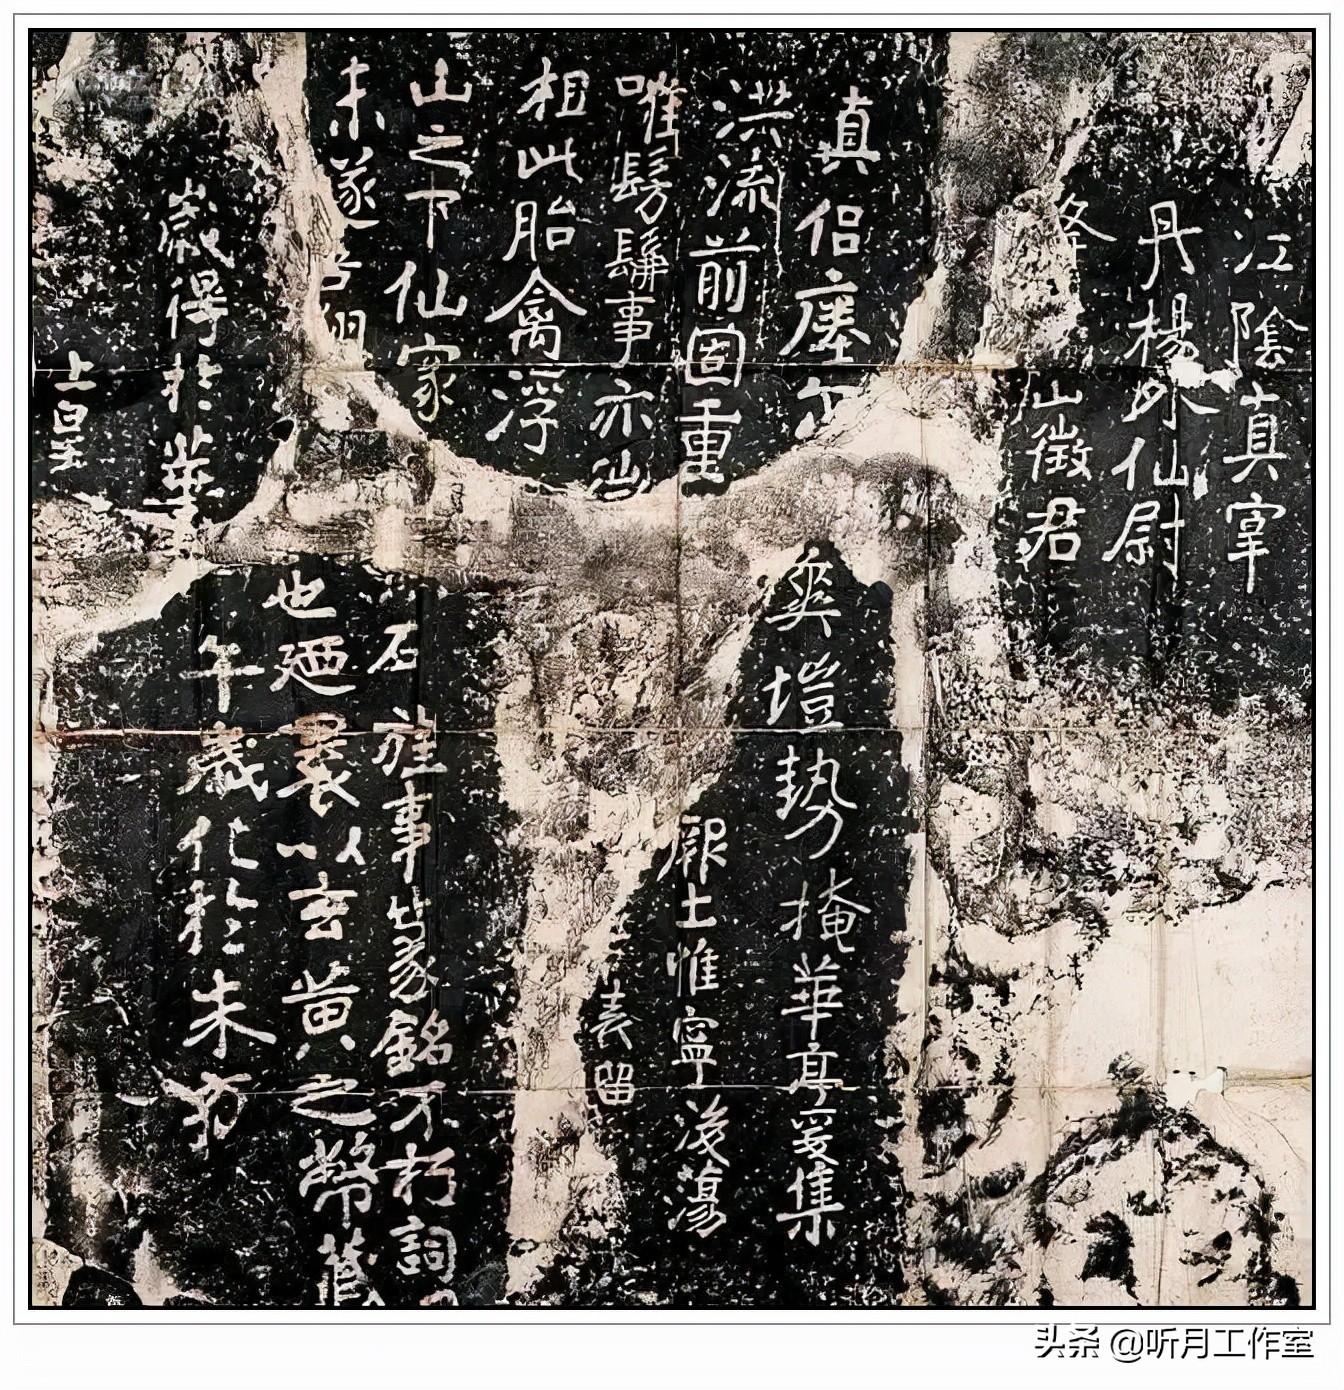 上皇
歲得於華
午歲化於朱方
未遂吾翔
也廼裹以玄黃之幣藏
山之下仙家
石旌事篆銘不朽詞
相此胎禽浮
表留
唯髣髴事亦
厥土惟寧後蕩
洪流前固重
爽塏勢掩華亭爰集
真侶瘞尓
夅山徵君
丹楊外仙尉
江陰真宰
头条 @听月工作室